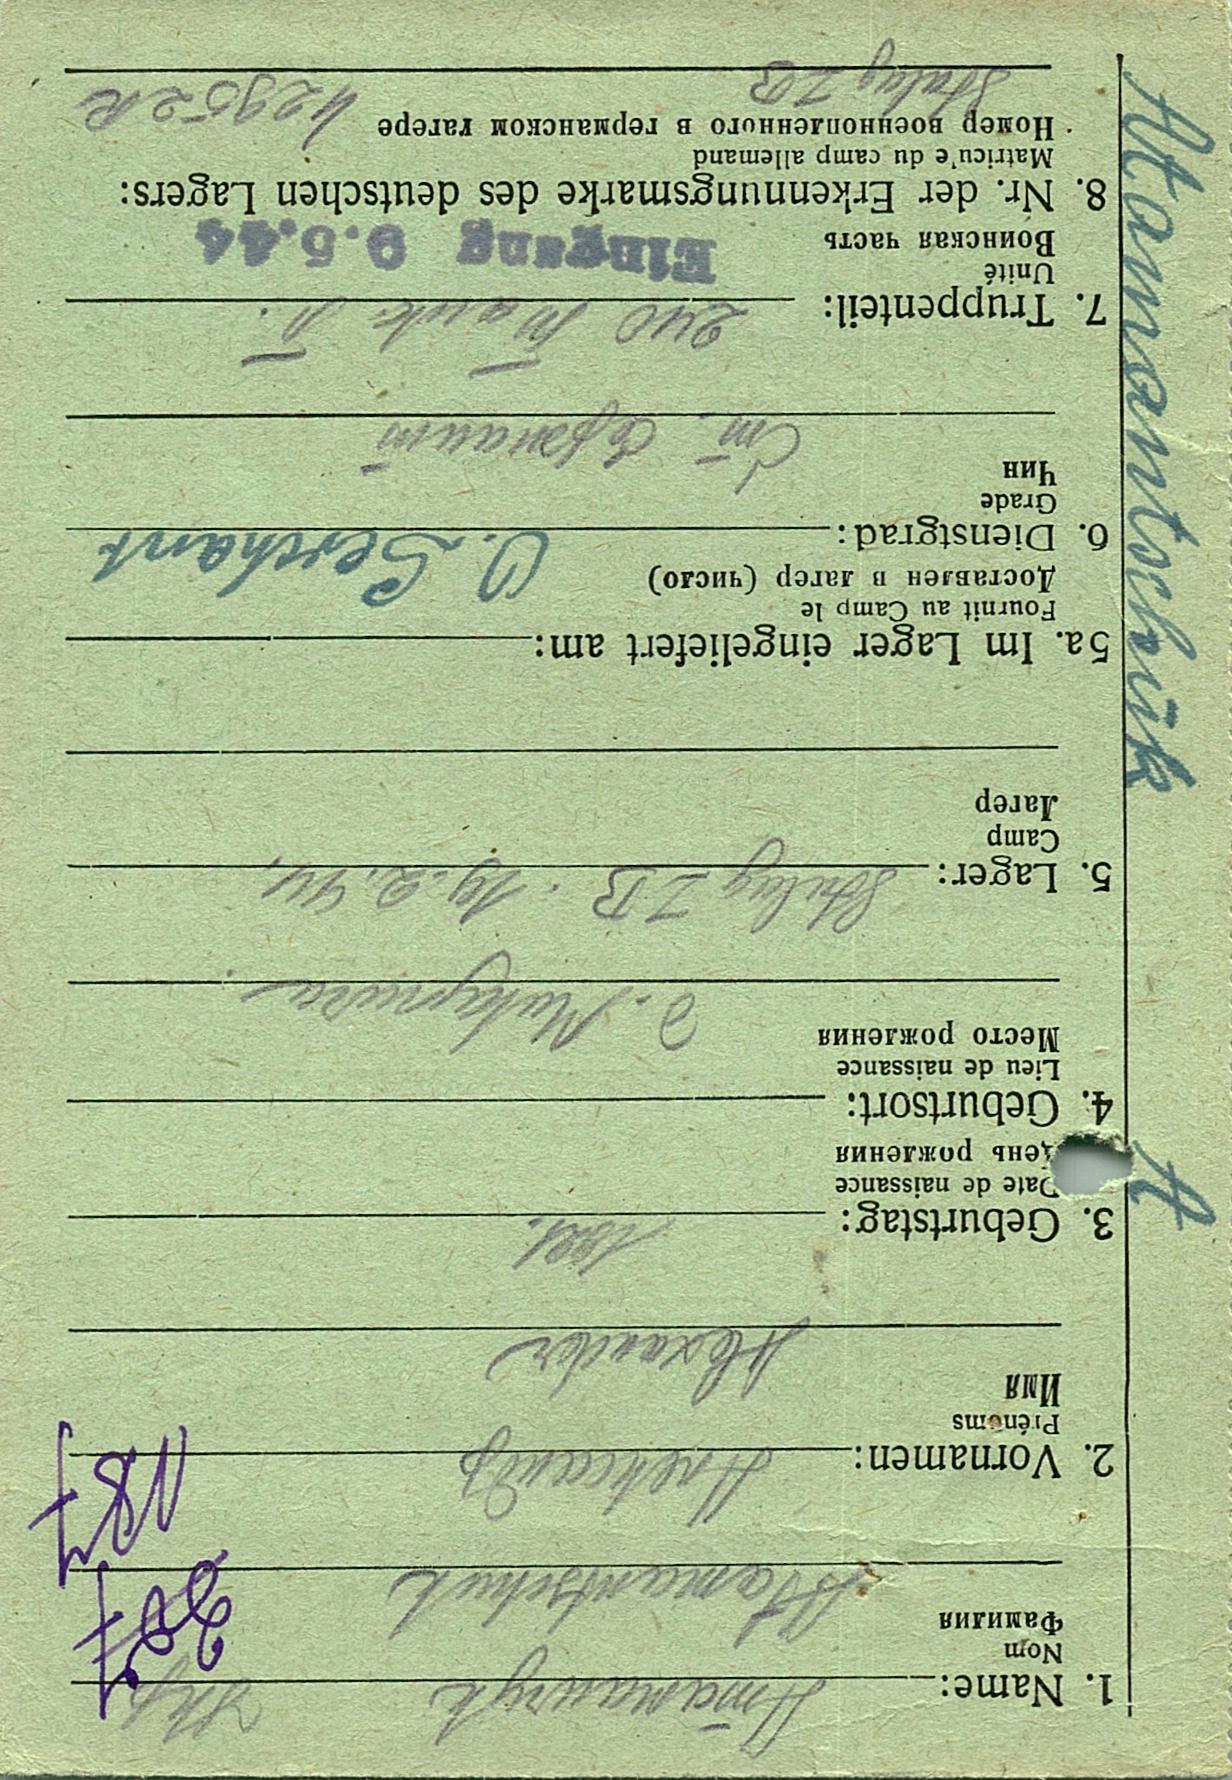 Atamantschuk
A
1. Name: Атаманчук Укр
Nom
Фамилия
Atamantschuk
2. Vornamen: Александр
Prénoms
Имя
Alexander
3. Geburtstag:
Date de naissance
День рождения
4. Geburtsort:
Lieu de naissance
Место рождения
д.
5. Lager: Stalag IB. 19.2.44.
Camp
Лагер
5a. Im Lager eingeliefert am:
Fournit au Camp le
Доставлен в лагер (число)
6. Dienstgrad: O. Serchant
Grade
Чин
Ст. Сержант
7. Truppenteil: 240 танк П.
Unité
Воинская часть
Eingang 9.5.44
8. Nr. der Erkennungsmarke des deutschen Lagers:
Matricu'e du camp allemand
Номер военнопленного в германском лагере 42952 R
Stalag IB